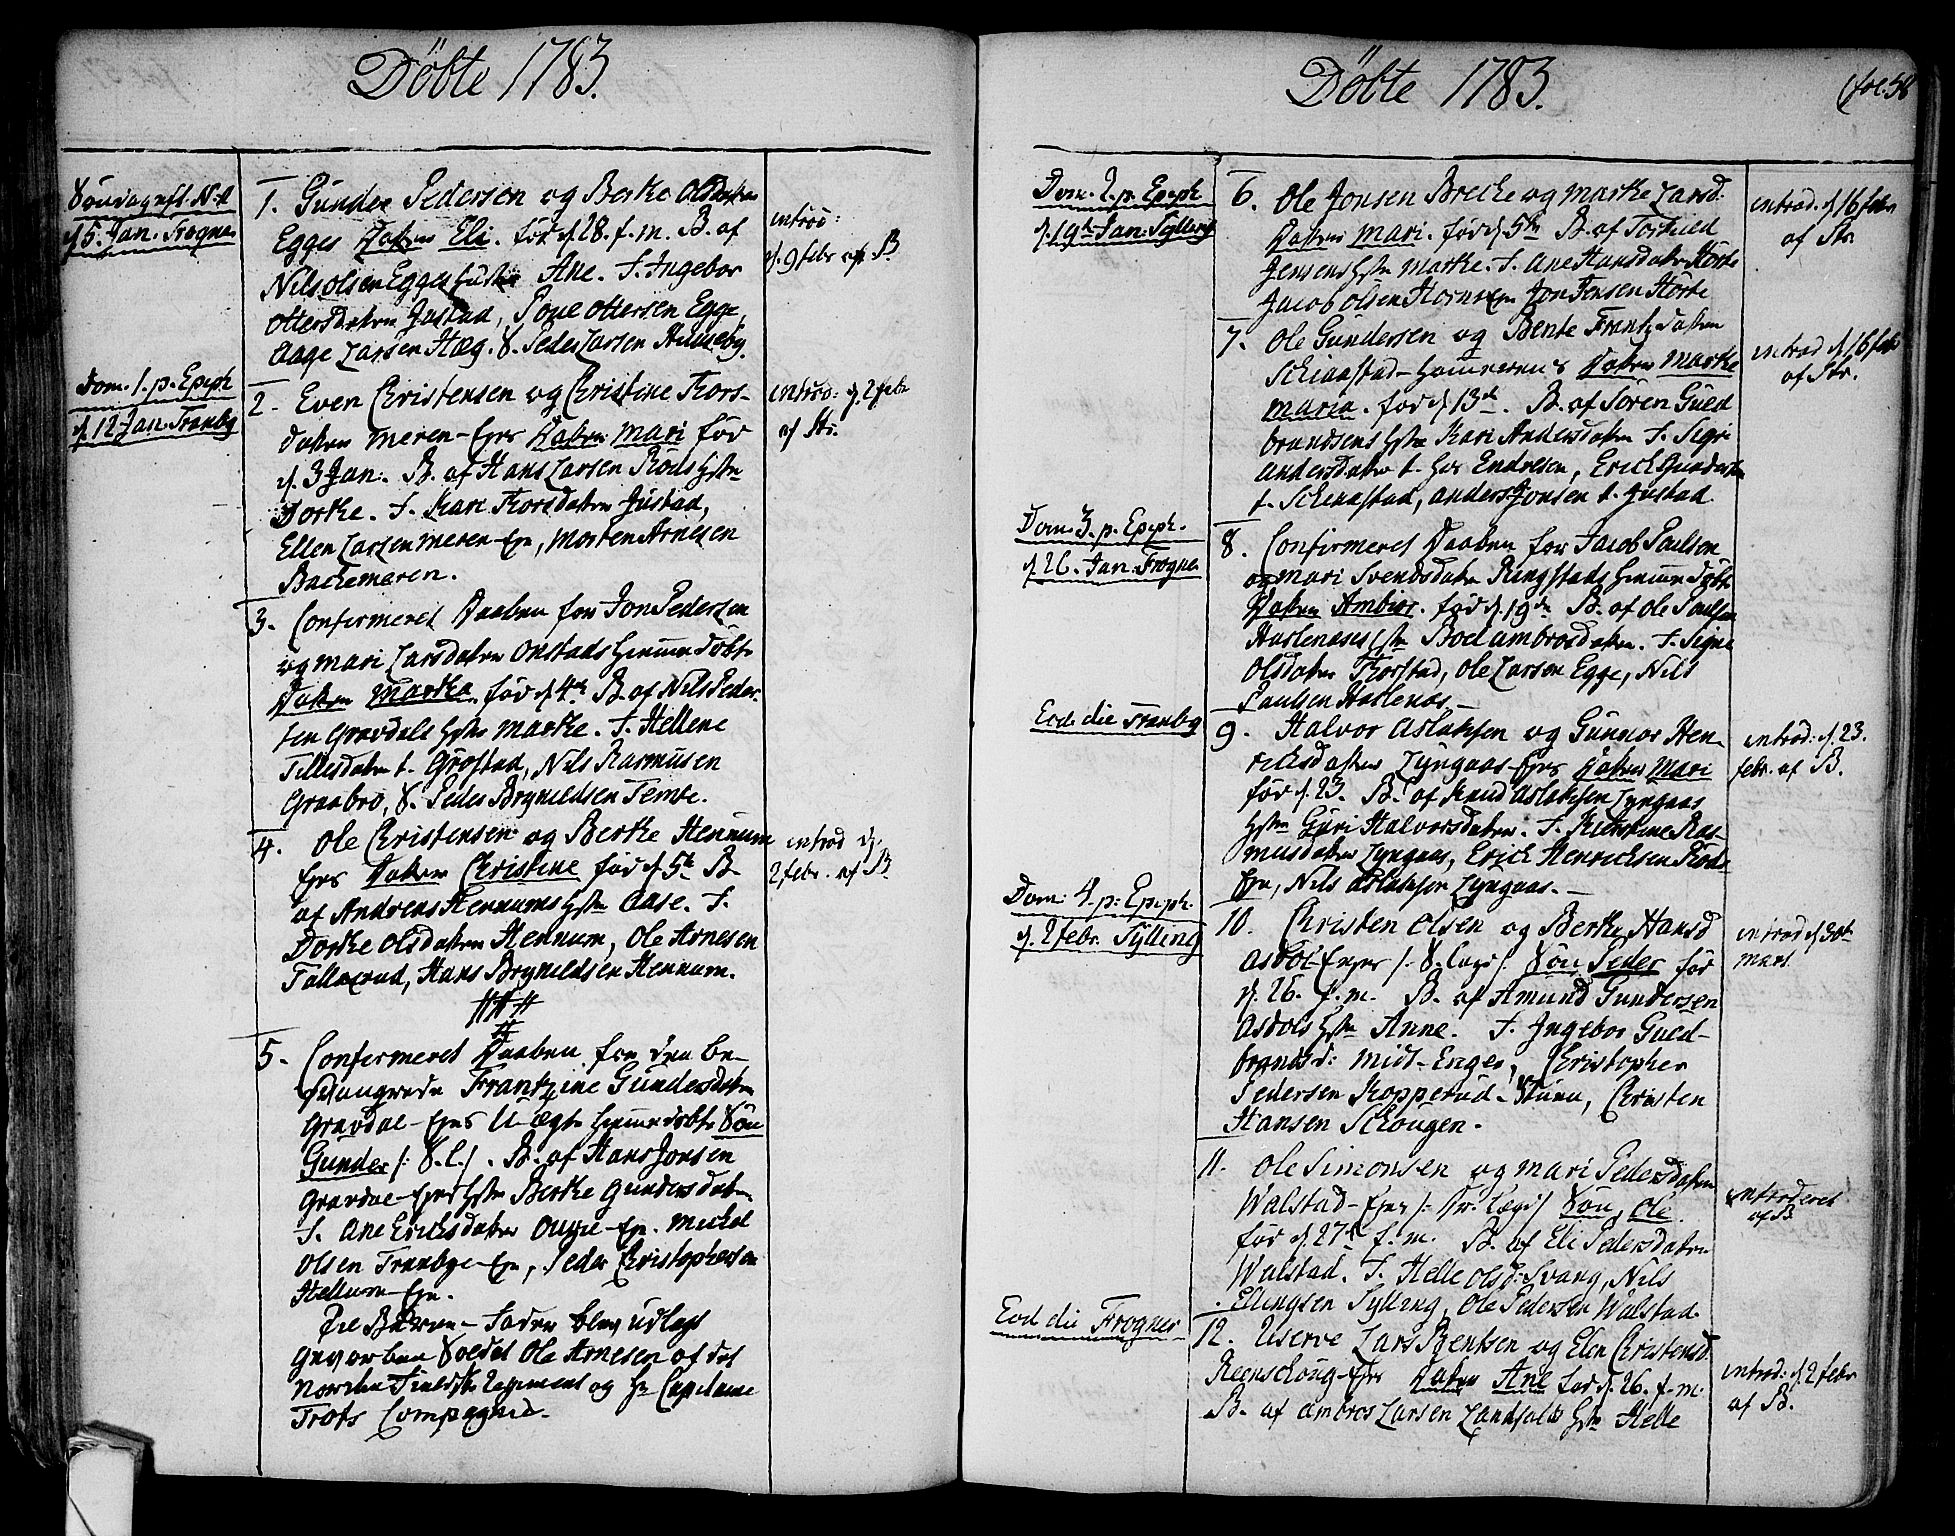 Döbte 1783.
Söndag eft. N: A
d. 5. Jan. Frogner
1. Gunder Pedersen og Berte Olsdatter
Egges Datter Eli. föd d. 28. f. m. B. af
Nils Olsen Egges Hustru Ane. F. Ingebor
Ottersdatter Justad, Poue Ottersen Egge,
Aage Larsen Hæg. & Peder Larsen Huuseby.
introd:
d. 9 febr af B
Dom. 1. p. Epiph
d. 12 Jan. Tranby
2. Even Christensen og Christine Thors-
datter Meren-Ejes Datter Mari föd
d. 3 Jan: B. af Hans Larsen Röds Hstr
Dorthe. F. Kari Thorsdatter Justad,
Ellen Larsen Meren-Eje, Morten Arnesen
Bachemeren.
introd: d. 2 febr
af Str.
3. Confirmeret Daaben for Jon Pedersen
og Mari Larsdatter Onstads hjemme döbte
Datter Marthe. föd d. 4de B. af Nils Peder-
sen Gravdals Hstr Marthe. F. Hellene
Tillesdatter t. Gröstad, Nils Rasmusen
Graabro, & Peder Brynildsen Temte.
4. Ole Christensen og Berthe Hennum
Ejes Datter Christine föd d. 5te B.
af Andreas Hennums Hstr Aase. F.
Dorthe Olsdatter Hennum, Ole Arnesen
Tallerud, Hans Brynildsen Hennum.
introd d.
2 febr. af B
5. Confirmeret Daaben for den be-
svangrede Frantzine Gundersdatter
Gravdal-Ejes Uægte hjemmedöbte Sön
Gunder /: S. l. /. B. af Hans Jonsen
Gravdal-Ejes Hstr Berthe Gundersdatter.
F. Ane Ericksdatter Ouni-Eje. Michel
Olsen Tranbye-Eje, Peder Christophersen
Hellum-Eje.
Til Barne-Fader blev udlagt
Gevorben Soldat Ole Arnesen af det
Norske Regiment og Hr Capitaine
Trots Compagnie.
Döbte 1783.
fol. 58
Dom. 2. p. Epiph
d. 19de Jan. Sylling
6. Ole Jonsen Breche og Marthe Larsd:
Datter Mari. föd d. 5te B. af Torkild
Jensens Hstr Marthe. F. Ane Hansdatter Hörte
Jacob Olsen Horns Eje Jon Jensen Hörte
introd. d. 16 febr
af Str.
7. Ole Gundersen og Bente Frantzdatter
Schiaastad-Hammernes Datter Marthe
Maria. föd d. 13de. B. af Sören Guld
brandsens Hstr Kari Andersdatter F. Sigri
Andersdatter t. hos Endresen, Erick Gundersen
t. Schiaastad, Anders Jonsen t. Justad.
introd d. 16 febr
af Str.
Dom. 3. p. Epiph.
d. 26. Jan. Frogner
8. Confirmeret Daaben for Jacob Paulsen
og Mari Svendsdatter Ringstads hjemme döbte
Datter Ambior. föd d. 19de B. af Ole Paulsen
Haslenæses Hstr Boel Ambrosdatter. F. Signe
Olsdatter Thorstad, Ole Larsen Egge, Nils
Paulsen Haslenæs.
Eod. die Tranby
9. Halvor Aslaksen og Gunnor Hen-
richsdatter Lyngaas-Ejes Datter Mari
föd d. 23. B. af Knud Aslaksen Lyngaas
Hstr Guri Halvorsdatter. F. Kierstine Ras-
musdatter Lyngaas, Erick Henricksen Röds
Eje, Nils Aslaksen Lyngaas.-
introd: d. 23.
febr. af B.
Dom: 4. p: Epiph.
d. 2 febr. Sylling
10. Christen Olsen og Berthe Hansd
Asdöl-Ejes /: S. Lagd /: Sön Peder föd
d. 26. f. m. B. af Amund Gundersen
Asdöls Hstr Anne. F. Ingebor Guld-
brandsd: Midt-Enger, Christopher
Pedersen Kopperud-Stuen, Christen
Hansen Schougen.
introd d. 30te
mart.
11. Ole Simonsen og Mari Pedersdatter
Walstad-Ejes /: Dr. Lægd / Sön Ole
föd d. 27de f. m. B. af Eli Pedersdatter
Walstad. F. Helle Olsd: Svang, Nils
Ellingsen Sylling, Ole Pedersen Walstad
introduceret
af B.
Eod die Frogner
12. Reserve Lars Bentsen og Elen Christensd.
Reenschoug-Ejes Datter Ane föd d. 26. f. m.
B. af Ambros Larsen Landfalds Hstr Helle
introd: d. 2 febr
af B.